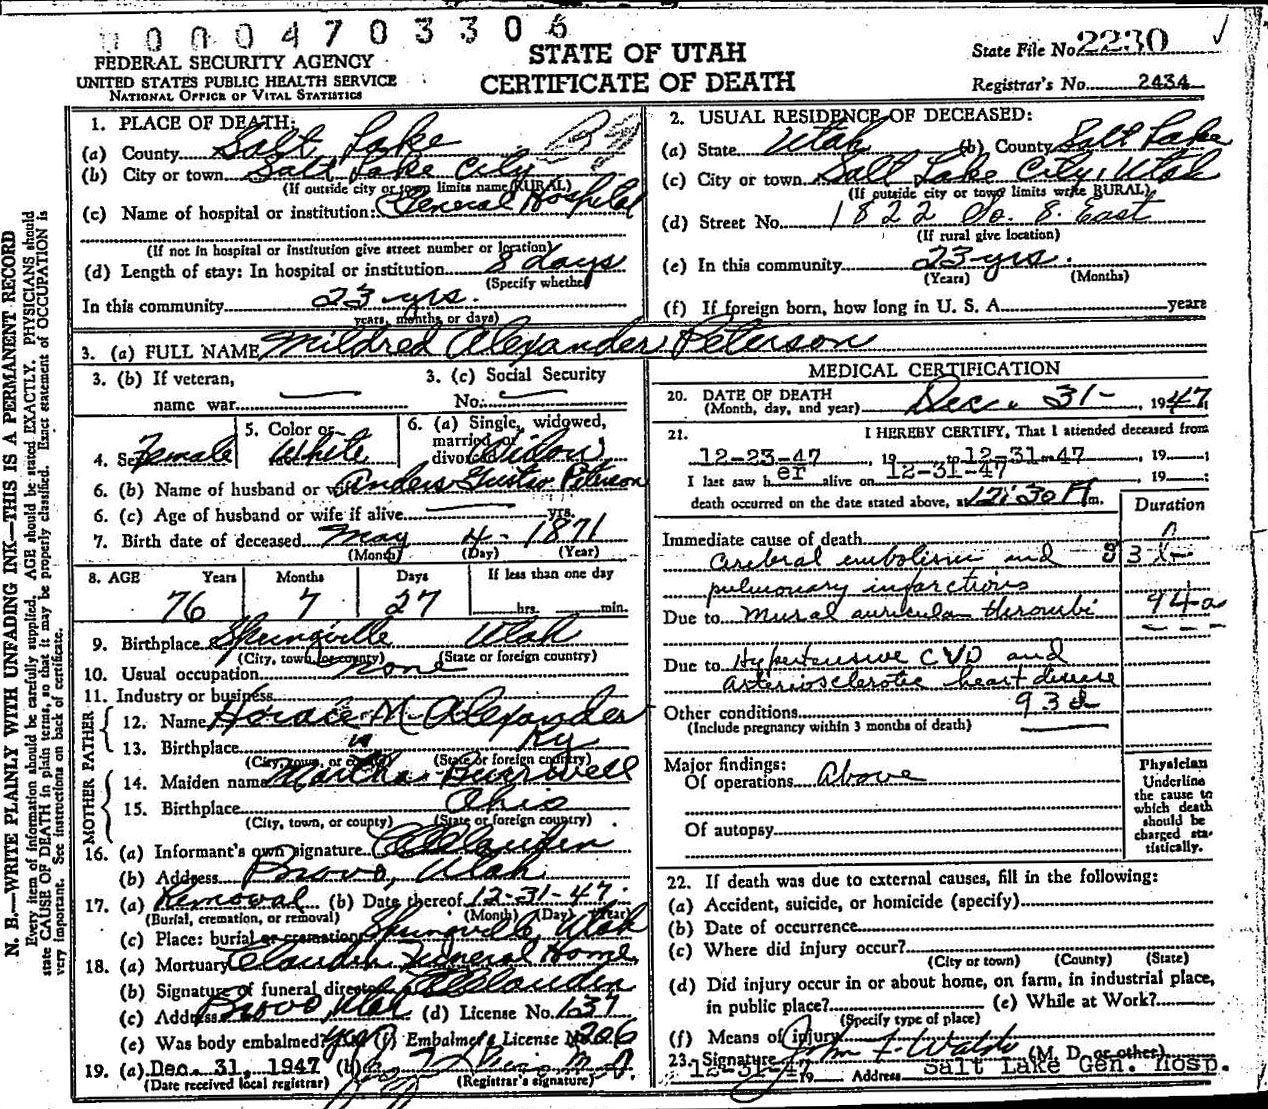 0004703306
FEDERAL SECURITY AGENCY
UNITED STATES PUBLIC HEALTH SERVICE
NATIONAL OFFICE OF VITAL STATISTICS
STATE OF UTAH
CERTIFICATE OF DEATH
State File No. 2230
Registrar's No. 2434
N. B.—WRITE PLAINLY WITH UNFADING INK—THIS IS A PERMANENT RECORD
Every item of information should be carefully supplied. AGE should be stated EXACTLY. PHYSICIANS should
state CAUSE OF DEATH in plain terms, so that it may be properly classified. Exact statement of OCCUPATION is
very important. See instructions on back of certificate.
1. PLACE OF DEATH:
(a) County Salt Lake
(b) City or town Salt Lake City
(If outside city or town limits name RURAL)
(c) Name of hospital or institution: General Hospital
(If not in hospital or institution give street number or location)
(d) Length of stay: In hospital or institution 8 days
(Specify whether
In this community 23 yrs.
years, months or days)
2. USUAL RESIDENCE OF DECEASED:
(a) State Utah (b) County Salt Lake
(c) City or town Salt Lake City, Utah
(If outside city or town limits write RURAL)
(d) Street No. 1822 So. 8. East
(If rural give location)
(e) In this community 23 yrs.
(Years) (Months)
(f) If foreign born, how long in U. S. A. years
3. (a) FULL NAME Mildred Alexander Peterson
3. (b) If veteran,
name war
3. (c) Social Security
No.
4. Sex Female
5. Color or
race White
6. (a) Single, widowed,
married, or
divorced Widow
6. (b) Name of husband or wife Anders Gustav Peterson
6. (c) Age of husband or wife if alive yrs.
7. Birth date of deceased May 4 - 1871
(Month) (Day) (Year)
8. AGE Years Months Days If less than one day
76 7 27 hrs. min.
9. Birthplace Springville Utah
(City, town, or county) (State or foreign country)
10. Usual occupation None
11. Industry or business
FATHER
12. Name Horace M. Alexander
13. Birthplace Ky
(City, town, or county) (State or foreign country)
MOTHER
14. Maiden name Martha Burrwell
15. Birthplace Ohio
(City, town, or county) (State or foreign country)
16. (a) Informant's own signature Claudin
(b) Address Provo, Utah
17. (a) Removal (b) Date thereof 12-31-47
(Burial, cremation, or removal) (Month) (Day) (Year)
(c) Place: burial or cremation Springville, Utah
18. (a) Mortuary Claudin Funeral Home
(b) Signature of funeral director Claudin
(c) Address Provo, Utah (d) License No. 137
(e) Was body embalmed? Yes (f) Embalmer's License No. 206
19. (a) Dec. 31, 1947 (b) M D
(Date received local registrar) (Registrar's signature)
MEDICAL CERTIFICATION
20. DATE OF DEATH
(Month, day, and year) Dec. 31- , 1947
21. I HEREBY CERTIFY, That I attended deceased from
12-23-47, 19 to 12-31-47, 19 ;
I last saw her alive on 12-31-47, 19 ;
death occurred on the date stated above, at 12:30 P m.
Duration
Immediate cause of death
Cerebral embolism and
pulmonary infarctions
94-a
Due to Mural auricular thrombi
Due to Hypertensive CVD and
arteriosclerotic heart disease
Other conditions 93d
(Include pregnancy within 3 months of death)
Major findings:
Of operations Above
Of autopsy
Physician
Underline
the cause to
which death
should be
charged sta-
tistically.
22. If death was due to external causes, fill in the following:
(a) Accident, suicide, or homicide (specify)
(b) Date of occurrence
(c) Where did injury occur?
(City or town) (County) (State)
(d) Did injury occur in or about home, on farm, in industrial place,
in public place? (e) While at Work?
(Specify type of place)
(f) Means of injury
23. Signature John F. Waldo (M. D. or other)
12-31-47 19 Address Salt Lake Gen. Hosp.